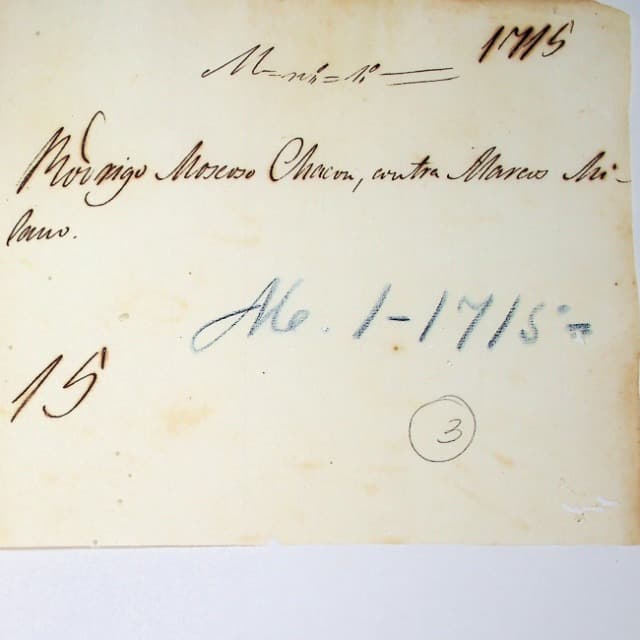 1715
M = nº = 1º =
Rodrigo Moscoso Chacon, contra Marcos Mi-
lano.
1-1715=
15
3